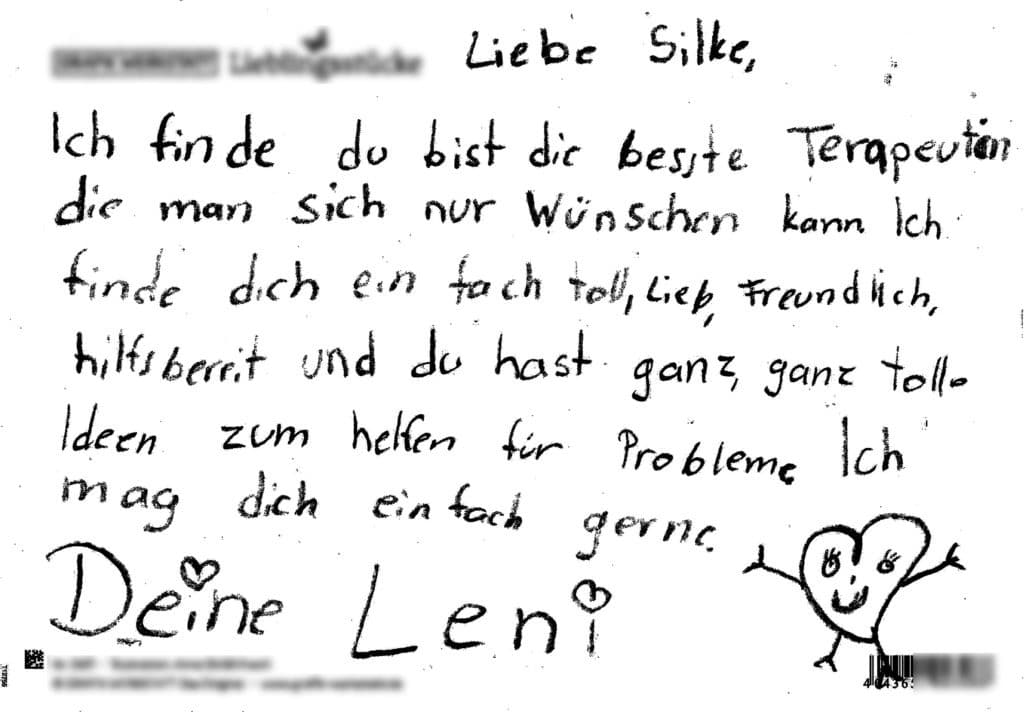 Liebe Silke,
Ich finde du bist die besste Terapeutin
die man sich nur Wünschen kann Ich
finde dich ein fach toll, Lieb, Freundlich,
hilfsbereit und du hast ganz, ganz tolle
Ideen zum helfen für Probleme Ich
mag dich einfach gerne.
Deine Leni